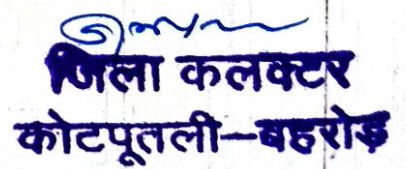 जिला कलक्टर
कोटपूतली—बहरोड़